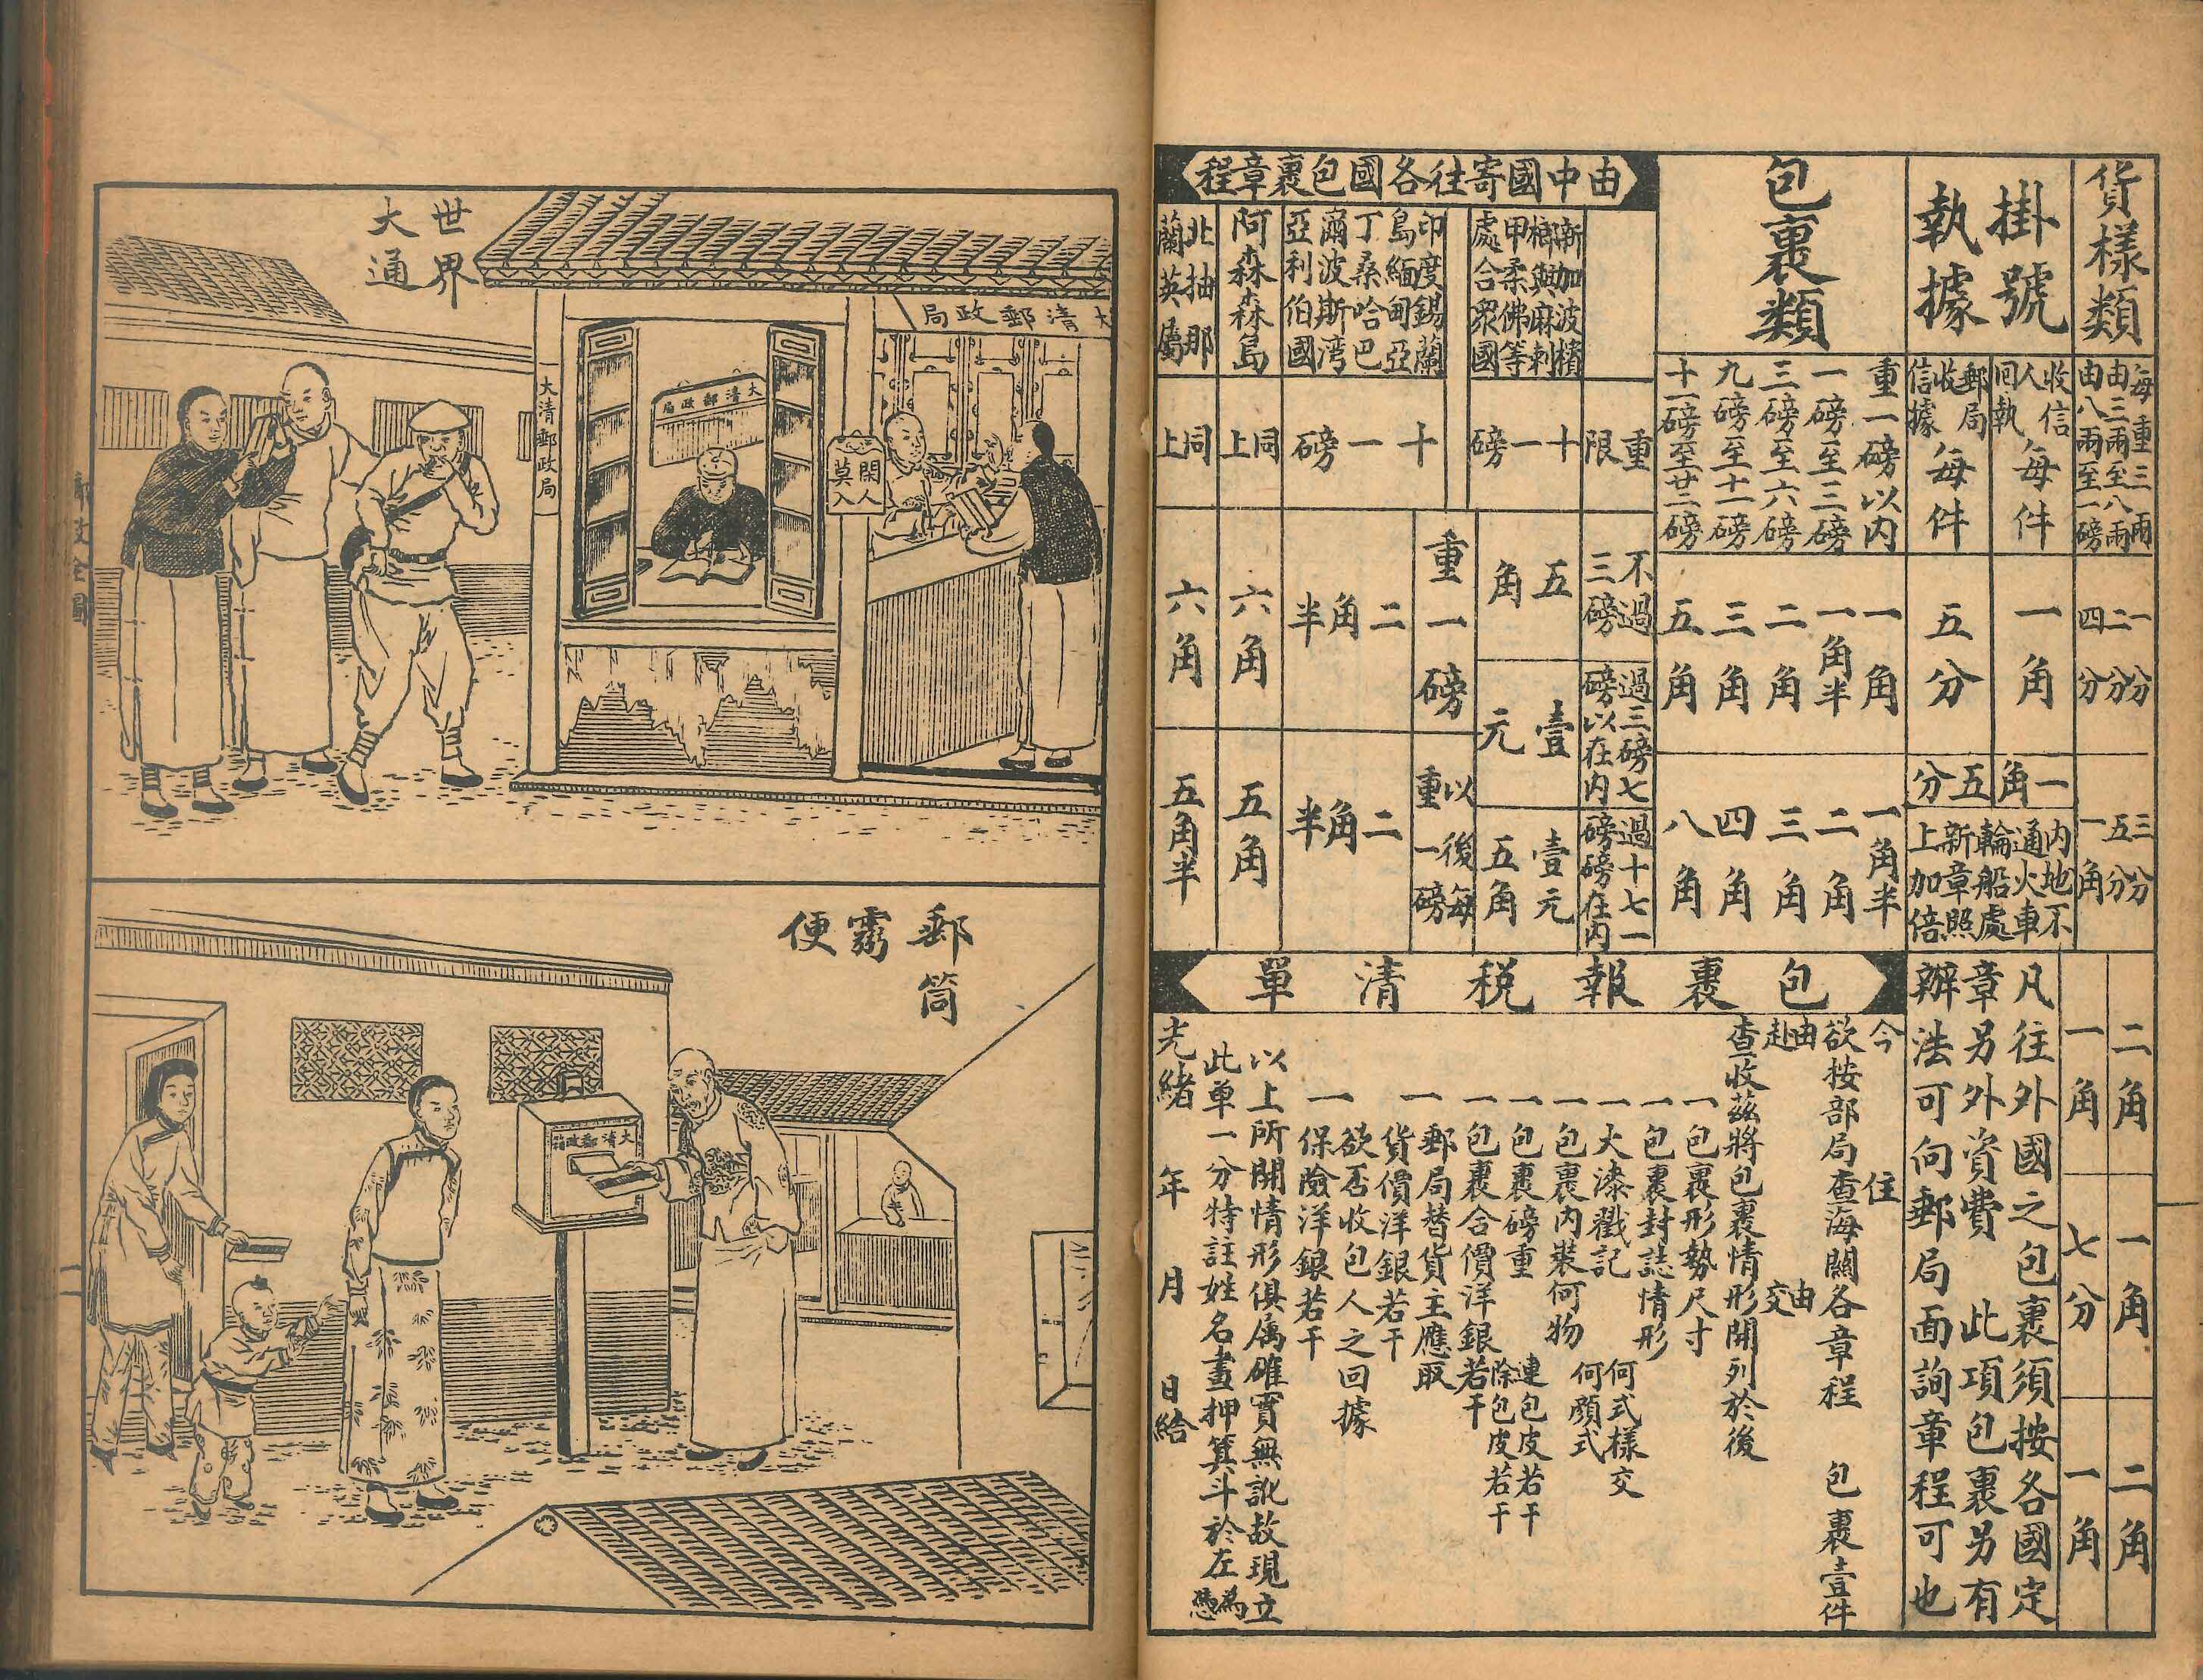 貨樣類
每重三兩
由三兩至八兩
由八兩至一磅
一分
二分
四分
三分
五分
一角
二角
一角
二角
一角
七分
一角
掛號
執據
收信人回執每件
一角
一角
郵局收信據每件
五分
五分
內地不通火車輪船處新章照上加倍
凡往外國之包裹須按各國定
章另外資費 此項包裹另有
辦法可向郵局面詢章程可也
包裹類
重一磅以內
一磅至三磅
三磅至六磅
九磅至十一磅
十一磅至廿二磅
一角
一角半
二角
三角
五角
一角半
二角
三角
四角
八角
由中國寄往各國包裹章程
重限
不過三磅
過三磅七磅以在內
過七磅十一磅在內
新加波檳榔與麻剌甲柔佛等處合衆國
十一磅
五角
壹元
壹元五角
重一磅
以後每重一磅
印度錫蘭島緬甸亞丁桑哈巴爾波斯灣亞利伯國
十一磅
二角半
二角半
阿森森島
同上
六角
五角
北抽那蘭英屬
同上
六角
五角半
包裹報税清單
今 住
欲按部局查海關各章程 包裹壹件
由 由
赴 交
查收茲將包裹情形開列於後
一包裹形勢尺寸
一包裹封誌情形
一大漆戳記 何式樣交
何顏式
一包裹內裝何物
一包裹磅重 連包皮若干
除包皮若干
一包裹合價洋銀若干
一郵局替貨主應取
貨價洋銀若干
一欲否收包人之回據
保險洋銀若干
以上所開情形俱属確實無訛故現立
此单一分特註姓名畫押箕斗於左為憑
光緒 年 月 日給
世界
大通
大清郵政局
大清郵政局
大清郵政局
閑人
莫入
郵筒
便
大清郵政
郵政全圖